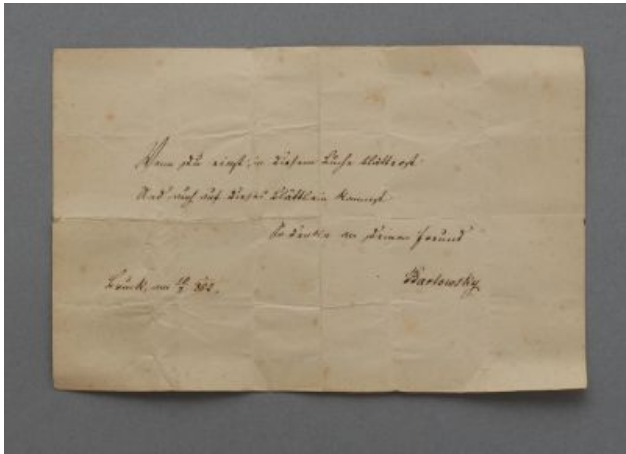 Wenn Du einst in diesem Buche blätterst
Und auch auf dieses Blättlein kommst
So denke an Deinen Freund
Bartowsky
Bruck, am